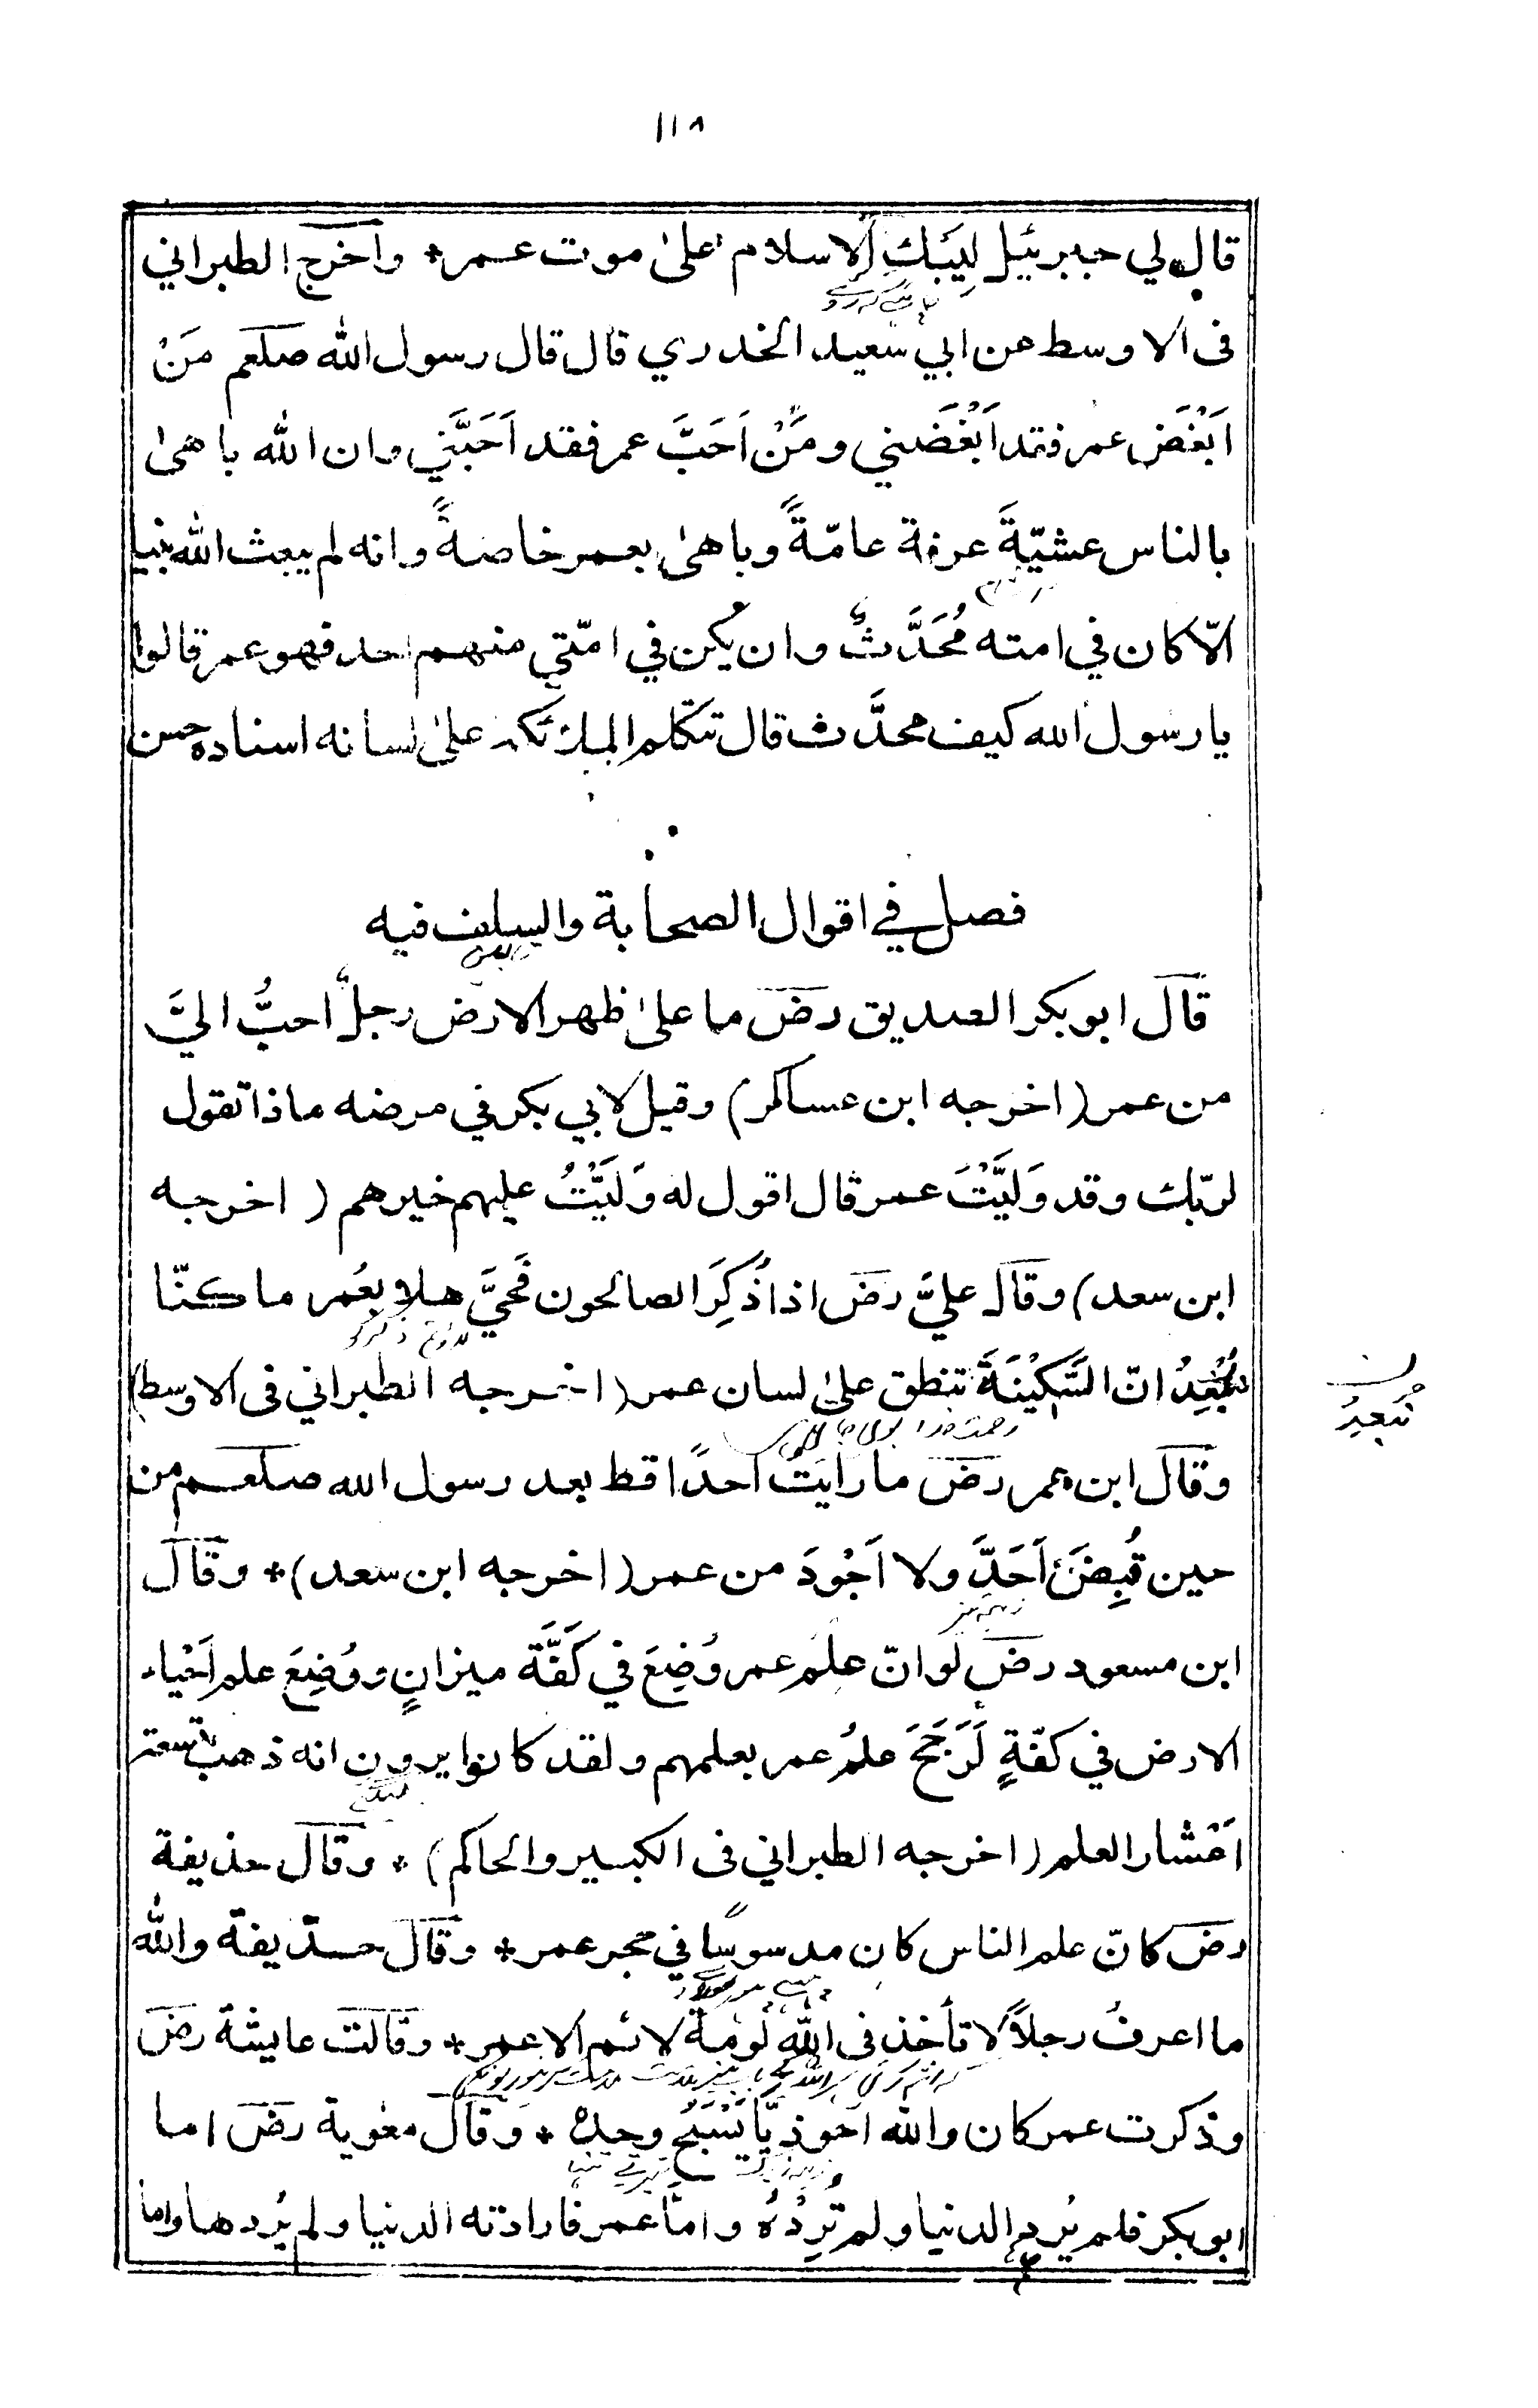 ١١٨
قال لي جبرئيل لِيَبْكِ الاسلام على موت عمر * واخرج الطبراني
فى الاوسط عن ابي سعيد الخدري قال قال رسول الله صلعم مَنْ
اَبْغَضَ عمر فقد اَبْغَضَني ومَنْ اَحَبَّ عمر فقد اَحَبَّني وان الله باهى
بالناس عشيّةَ عرفة عامّةً وباهى بعمر خاصةً وانه لم يبعث الله نبيا
الّا كان في امته مُحَدَّثٌ وان يكن في امّتي منهم احد فهو عمر قالوا
يا رسول الله كيف محدَّث قال تتكلم الملائكة على لسانه اسناده حسن
فصل في اقوال الصحابة والسلف فيه
قال ابو بكر الصديق رض ما على ظهر الارض رجلٌ احبُّ اليَّ
من عمر (اخرجه ابن عساكر) وقيل لابي بكر في مرضه ماذا تقول
لربّك وقد وَلَّيْتَ عمر قال اقول له وَلَّيْتُ عليهم خيرهم (اخرجه
ابن سعد) وقال عليّ رض اذا ذُكِرَ الصالحون فَحَيَّ هلا بعُمر ما كنّا
نُبْعِدُ انّ السَّكِيْنَةَ تنطق على لسان عمر (اخرجه الطبراني فى الاوسط)
نُبعِدُ
وقال ابن عمر رض ما رايت احدًا قط بعد رسول الله صلعم من
حين قُبِضَ اَحَدَّ ولا اَجْوَدَ من عمر (اخرجه ابن سعد) * وقال
ابن مسعود رض لو انّ علم عمر وُضِعَ في كَفَّة ميزانٍ ووُضِعَ علم اَحْياء
الارض في كفّةٍ لَرَجَحَ علمُ عمر بعلمهم ولقد كانوا يرون انه ذهب بتسعة
اَعْشار العلم (اخرجه الطبراني فى الكبير والحاكم) * وقال حذيفة
رض كانّ علم الناس كان مدسوسًا في حجر عمر * وقال حذيفة والله
ما اعرف رجلًا لا تأخذه فى الله لومة لائم الا عمر * وقالت عايشة رض
وذكرت عمر كان والله احوذيًّا نَسْيَجَ وحدِه * وقال معوية رض اما
ابو بكر فلم يُرِدِ الدنيا ولم تُرِدْهُ وامّا عمر فارادته الدنيا ولم يُردها واما